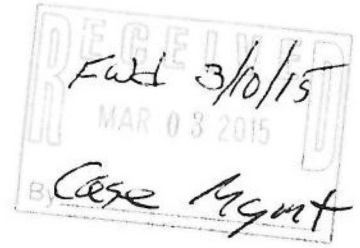 RECEIVED
Fwd 3/10/15
MAR 03 2015
By
Case Mgmt